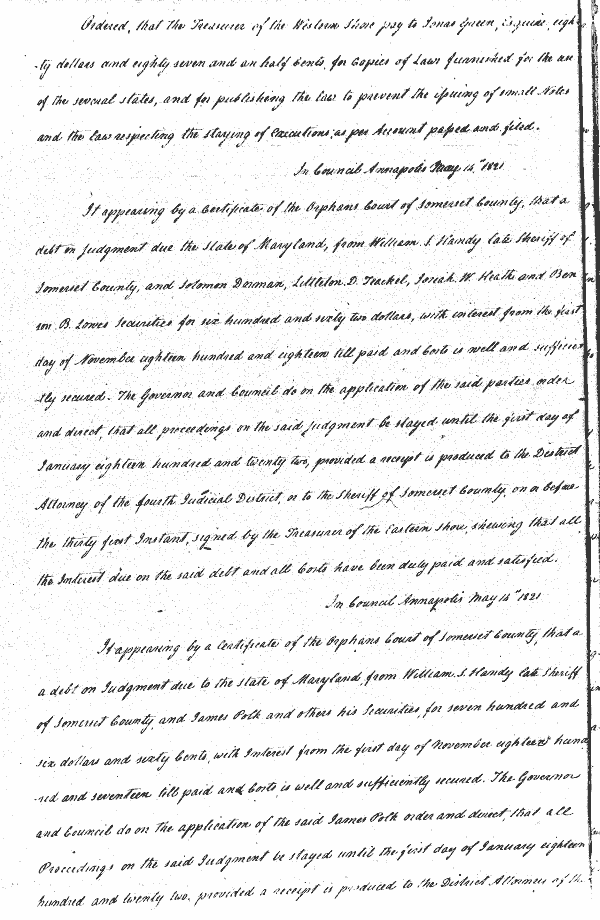 Ordered, that the Treasurer of the Western Shore pay to Jonas Green, Esquire, eigh-
-ty dollars and eighty seven and an half Cents, for Copies of Laws furnished for the use
of the several states, and for publishing the law to prevent the issuing of small Notes
and the law respecting the staying of Executions; as per Account passed and filed.
In Council Annapolis May 14th 1821
It appearing by a Certificate of the Orphans Court of Somerset County, that a
debt on Judgment due the State of Maryland, from William S. Handy late Sheriff of
Somerset County, and Solomon Dorman, Littleton D. Teackel, Josiah W. Heath and Ben
B. Lowes Securities for six hundred and sixty two dollars, with interest from the first
day of November eighteen hundred and eighteen till paid and Costs is well and sufficien
-tly secured. The Governor and Council do on the application of the said parties order
and direct, that all proceedings on the said Judgment be stayed until the first day of
January eighteen hundred and twenty two, provided a receipt is produced to the District
Attorney of the fourth Judicial District, or to the Sheriff of Somerset County, on or before
the thirty first Instant, signed by the Treasurer of the Eastern shore, shewing that all
the Interest due on the said debt and all Costs have been duly paid and satisfied.
In Council Annapolis May 14th 1821
It appearing by a Certificate of the Orphans Court of Somerset County, that a
a debt on Judgment due to the State of Maryland, from William S. Handy late Sheriff
of Somerset County, and James Polk and others his Securities, for seven hundred and
six dollars and sixty Cents, with Interest from the first day of November eighteen hund
-red and seventeen till paid and Costs is well and sufficiently secured. The Governor
and Council do on the application of the said James Polk order and direct, that all
Proceedings on the said Judgment be stayed until the first day of January eighteen
hundred and twenty two, provided a receipt is produced to the District Attorney of the